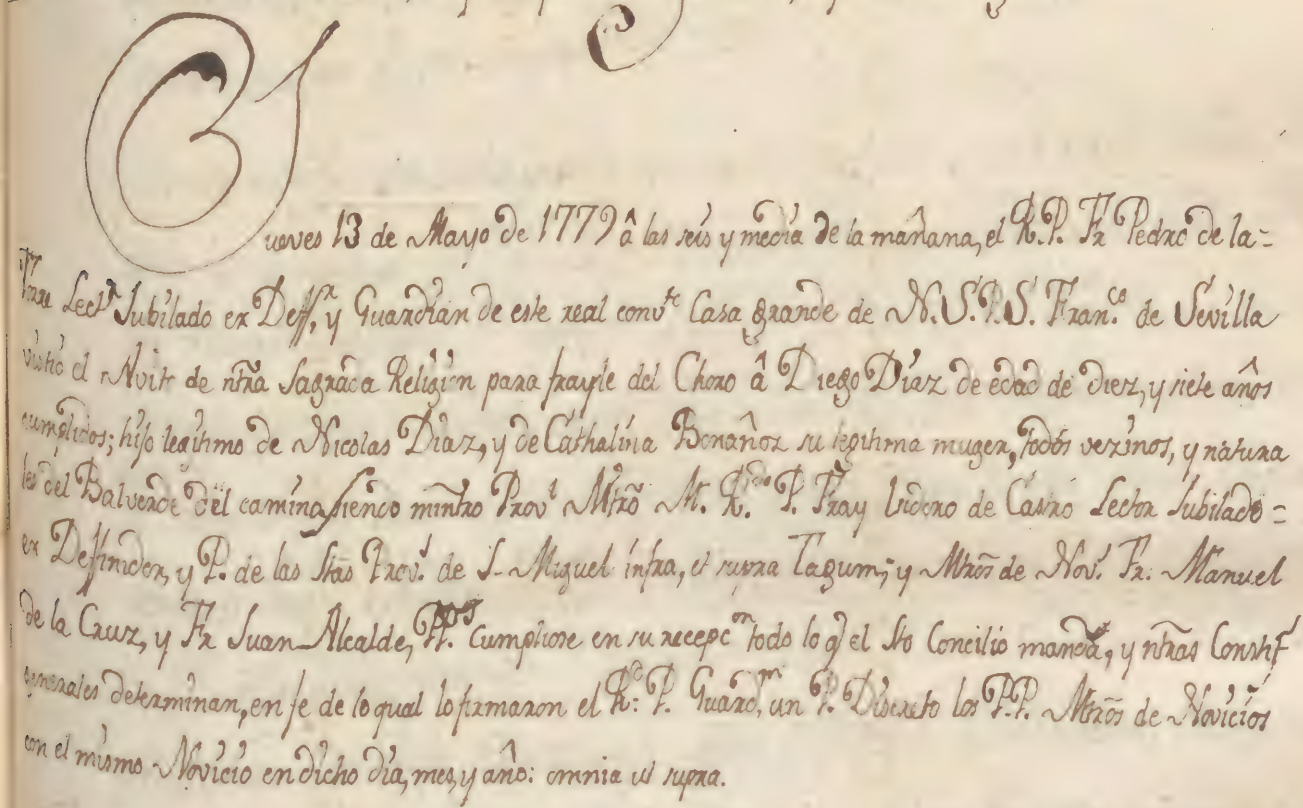 Jueves 13 de Mayo de 1779 â las seis y media de la mañana, el R.P. Fr Pedro de la=
Torre Lect.r Jubilado ex Deff.r y Guardian de este real conv.to Casa grande de N.S.P.S. Fran.co de Sevilla
vistió el Avito de ntra Sagrada Religion para frayle del Choro â Diego Díaz de edad de diez, y siete años
cumplidos; hijo legitimo de Nicolas Diaz, y de Cathalina Bonañoz su legitima muger, todos vezinos, y natura
les del Balverde del camino, siendo mintro Prov.l Mtrô M. R.do P. Fray Isidoro de Castro Lector Jubilado=
ex Deffinidor, y P. de las Stas Prov.s de S. Miguel infra, et supra Tagum; y Mtrôs de Nov.s Fr. Manuel
de la Cruz, y Fr Juan Alcalde, Cumpliose en su recepc.on todo lo q el Sto Concilio manda, y ntras Constit
generales determinan, en fe de lo qual lo firmaron el R.do P. Guard.n, un P. Discreto los P.P. Mtrôs de Novicios
con el mismo Novicio en dicho día, mes, y año: omnia ut supra.